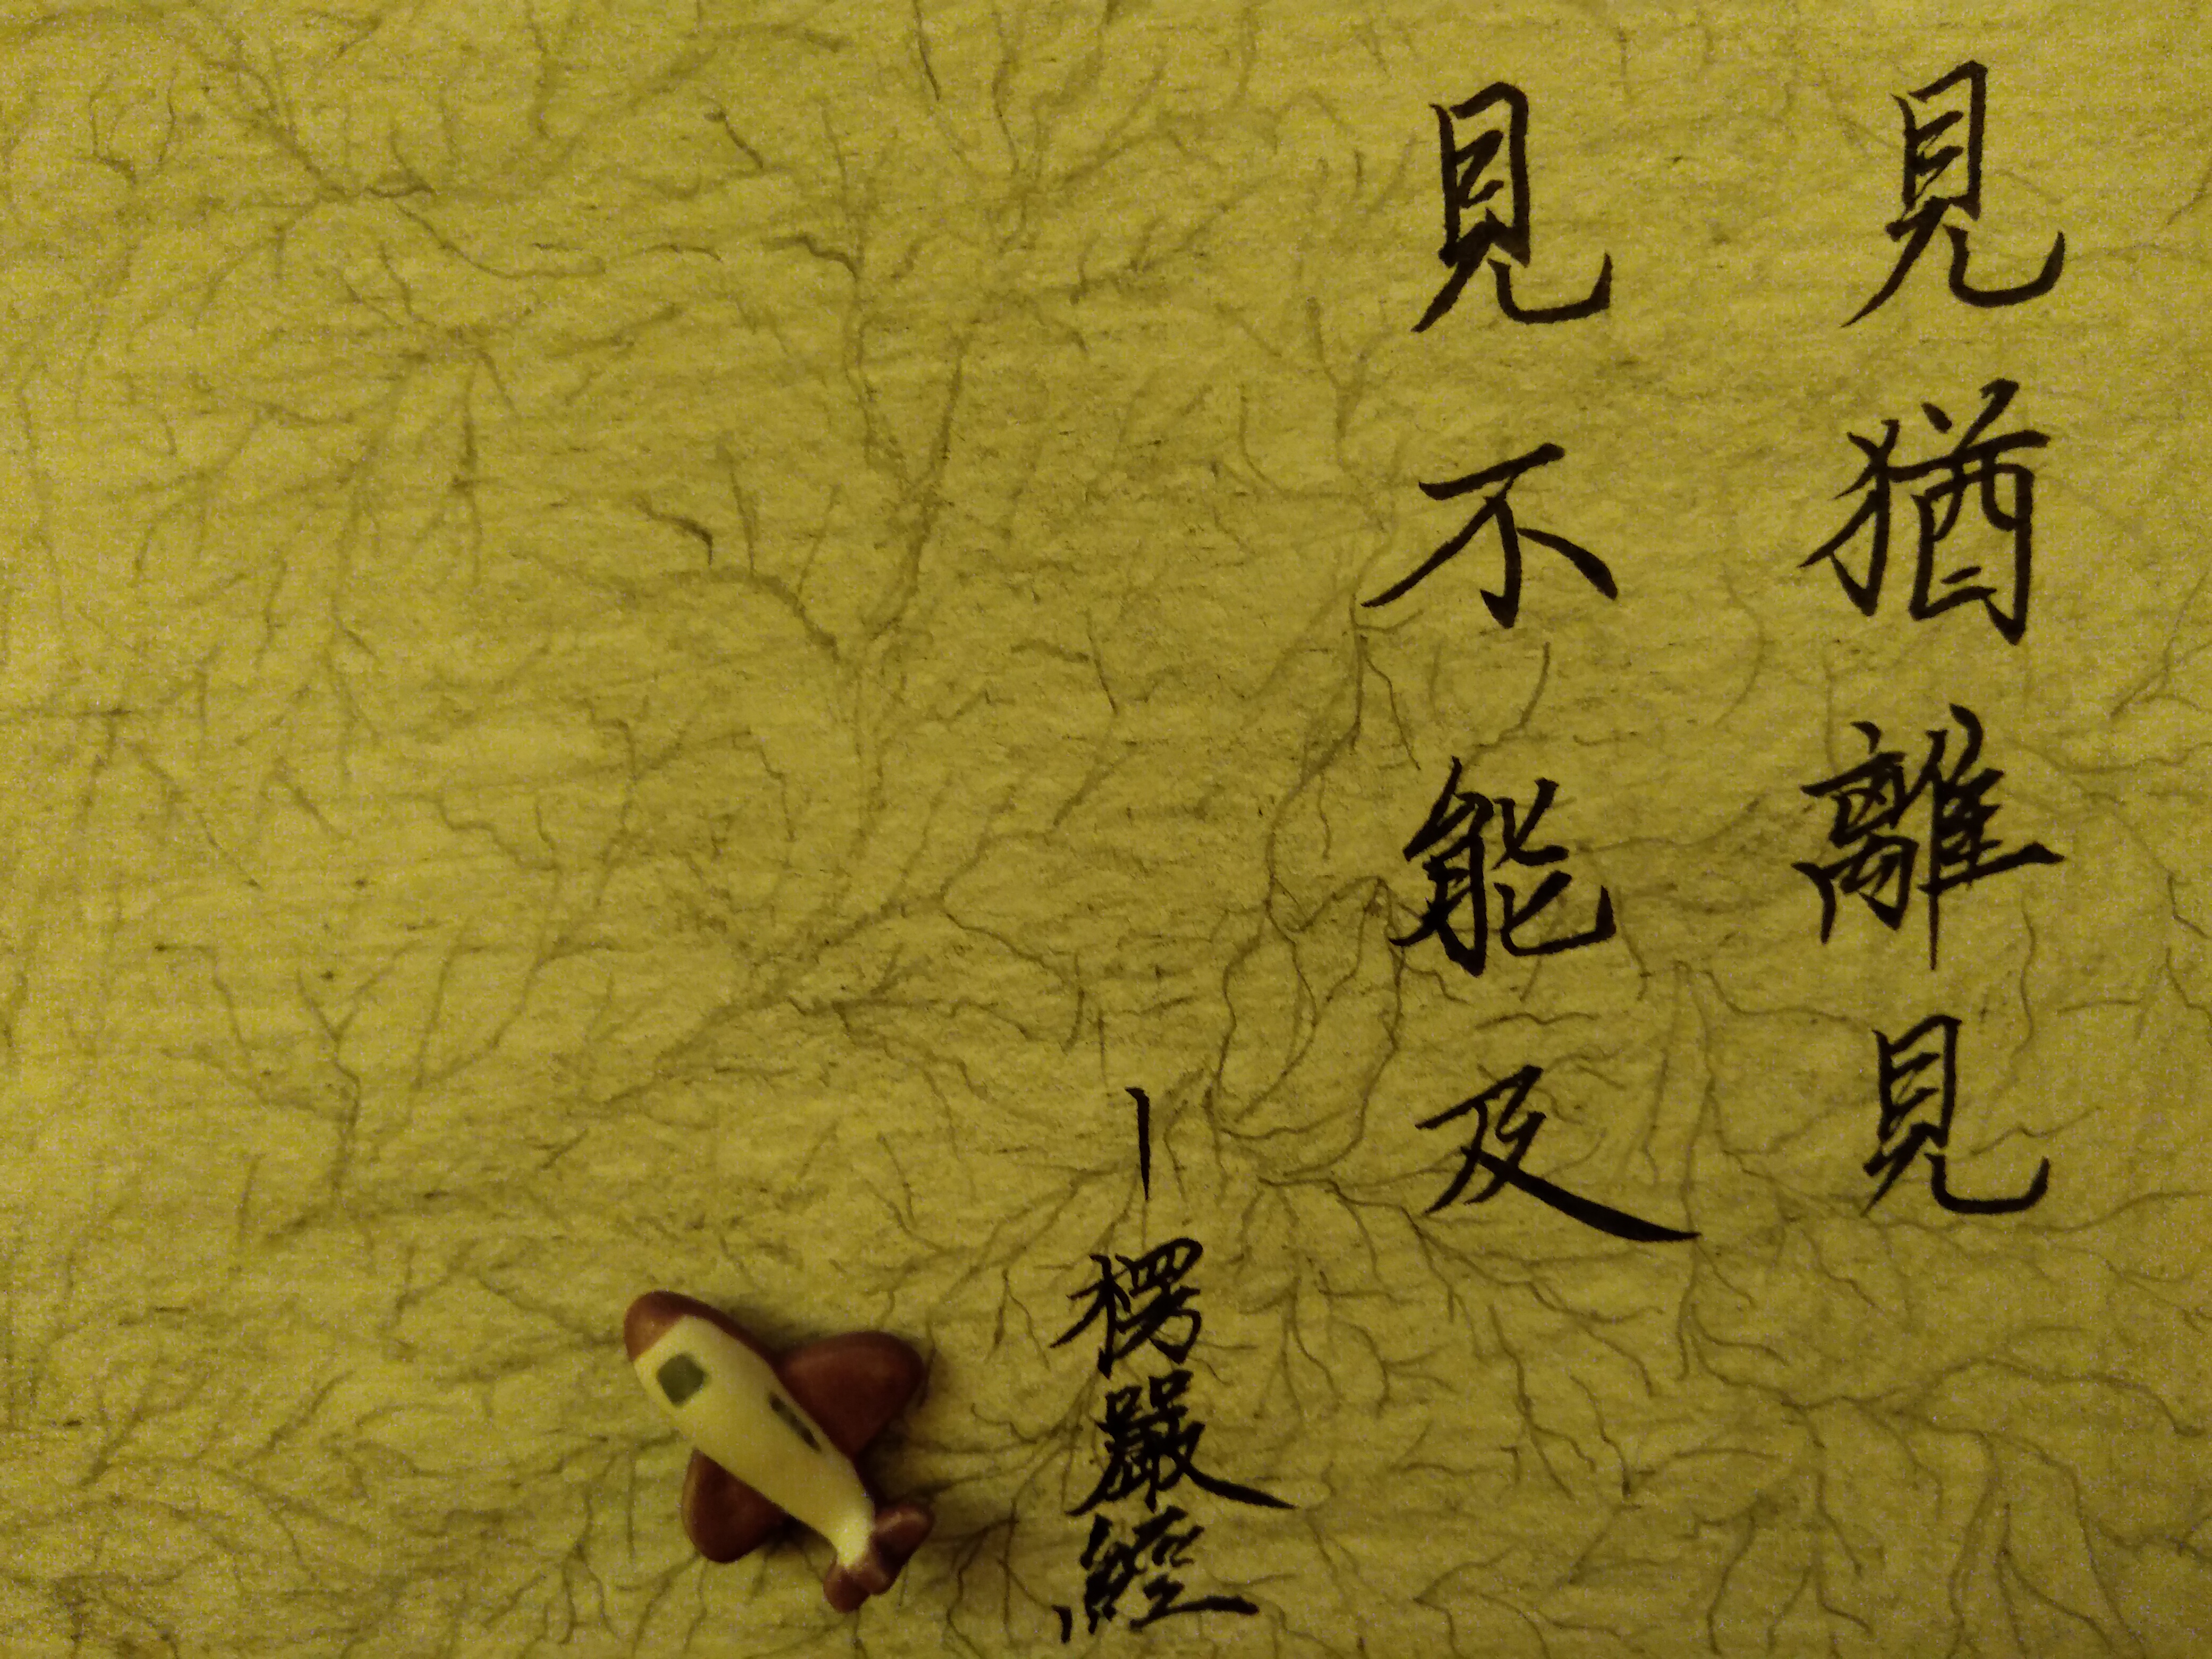 見猶離見
見不能及
—楞嚴經